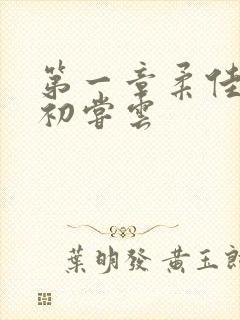 第一章柔佳
初嘗雲
葉明發 黃玉郎